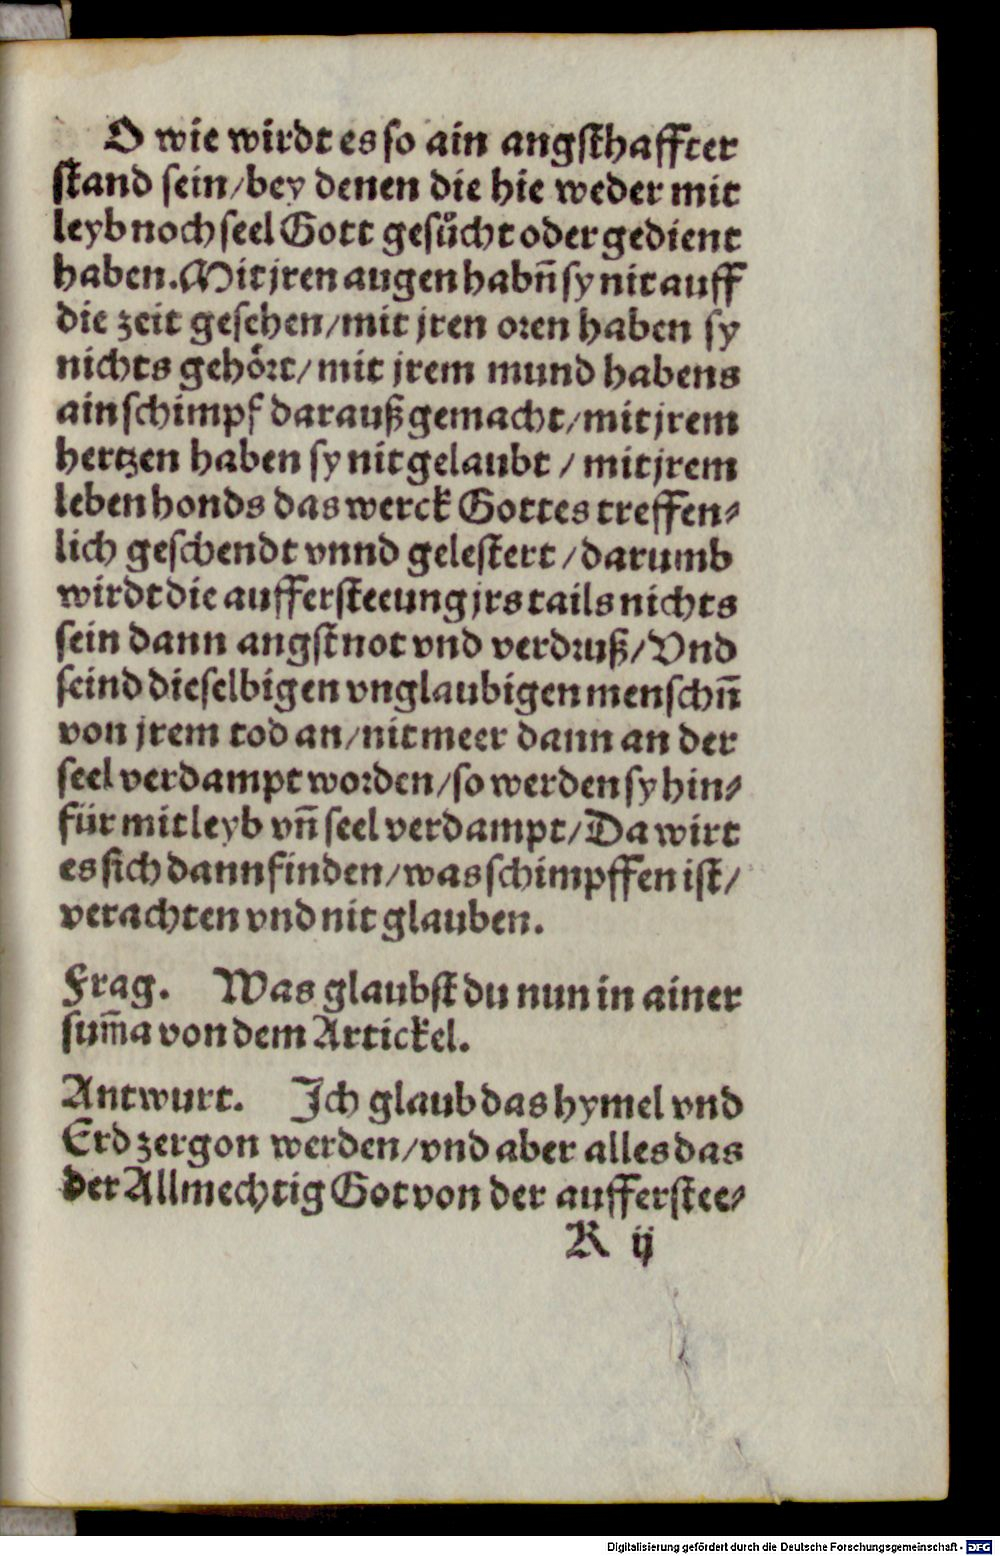 O wie wirdt es so ain angsthaffter
stand sein/bey denen die hie weder mit
leyb noch seel Gott gesuͦcht oder gedient
haben. Mit jren augen habñ sy nit auff
die zeit gesehen/mit jren oren haben sy
nichts gehoͤrt/mit jrem mund habens
ain schimpf darauß gemacht/mit jrem
hertzen haben sy nit gelaubt / mit jrem
leben honds das werck Gottes treffen⸗
lich geschendt vnnd gelestert /darumb
wirdt die aufferstee­ung jrs tails nichts
sein dann angst not vnd verdruß/Vnd
seind dieselbigen vnglaubigen menschñ
von jrem tod an/nit meer dann an der
seel verdampt worden/so werden sy hin⸗
für mit leyb vñ seel verdampt/Da wirt
es sich dann finden/was schimpffen ist/
verachten vnd nit glauben.
Frag. Was glaubst du nun in ainer
sum̃a von dem Artickel.
Antwurt. Ich glaub das hymel vnd
Erd zergon werden/vnd aber alles das
der Allmechtig Got von der aufferstee⸗
K ij
Digitalisierung gefördert durch die Deutsche Forschungsgemeinschaft - DFG